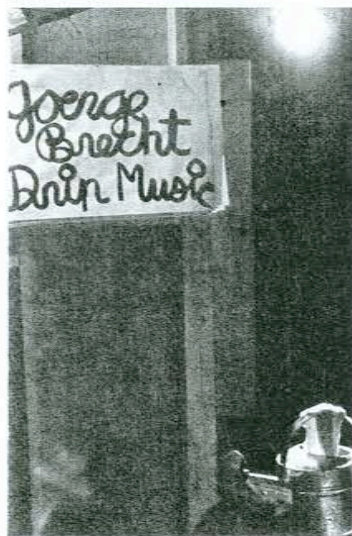 George
Brecht
Drip Music